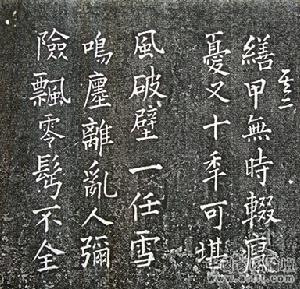 其二
繕甲無時輟
憂又十秊可堪
風破壁一任雪
鳴廛離亂人彌
險飄零鬢不全